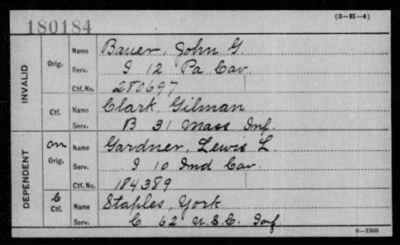 180184
(3-H-4)
INVALID
Orig.
Name Bauer, John G.
Serv. I 12 Pa Cav.
Ctf. No. 280697
Ctf.
Name Clark, Gilman
Serv. B 31 Mass Inf.
DEPENDENT
on
Orig.
Name Gardner, Lewis L
Serv. I 10 Ind Cav.
Ctf. No. 184389
C
Ctf.
Name Staples, York
Serv. C 62 U.S.C. Inf